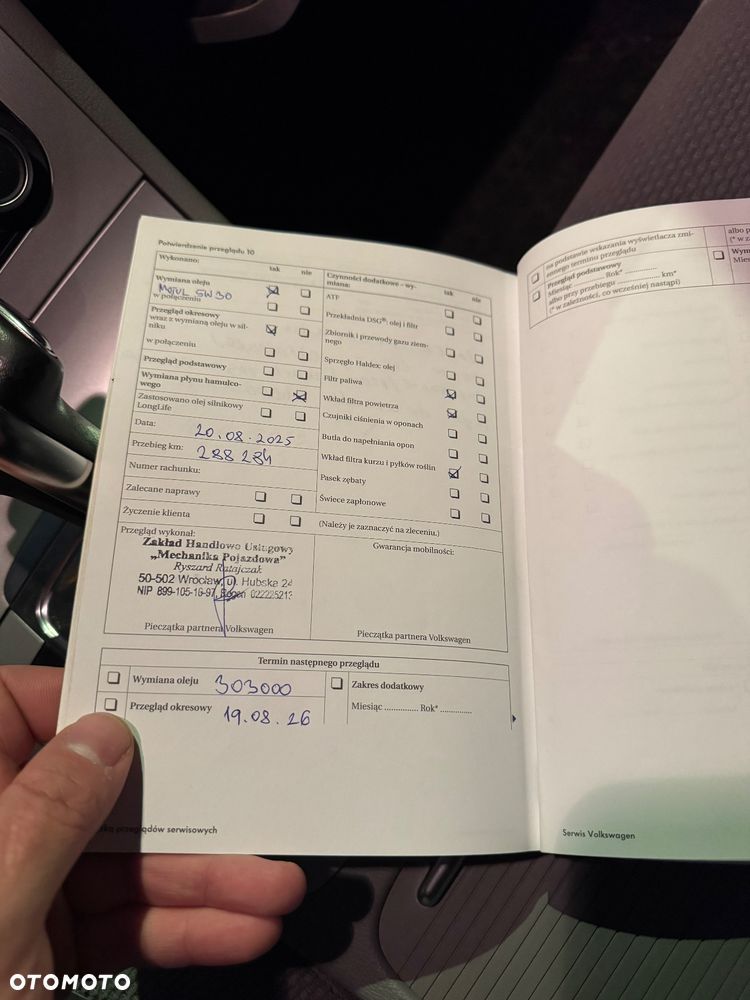 Potwierdzenie przeglądu 10
Wykonano:
tak nie
Wymiana oleju
MOTUL 5W30
w połączeniu
Przegląd okresowy
wraz z wymianą oleju w sil-
niku
w połączeniu
Przegląd podstawowy
Wymiana płynu hamulco-
wego
Zastosowano olej silnikowy
LongLife
Data: 20.08.2025
Przebieg km: 288 284
Numer rachunku:
Zalecane naprawy
Życzenie klienta
Czynności dodatkowe - wy-
miana:
tak nie
ATF
Przekładnia DSG®; olej i filtr
Zbiornik i przewody gazu ziem-
nego
Sprzęgło Haldex; olej
Filtr paliwa
Wkład filtra powietrza
Czujniki ciśnienia w oponach
Butla do napełniania opon
Wkład filtra kurzu i pyłków roślin
Pasek zębaty
Świece zapłonowe
(Należy je zaznaczyć na zleceniu.)
Przegląd wykonał:
Zakład Handlowo Usługowy
„Mechanika Pojazdowa"
Ryszard Ratajczak
50-502 Wrocław, ul. Hubska 24
NIP 899-105-16-97, Regon 022225213
Pieczątka partnera Volkswagen
Gwarancja mobilności:
Pieczątka partnera Volkswagen
Termin następnego przeglądu
Wymiana oleju 303000
Przegląd okresowy 19.08.26
Zakres dodatkowy
Miesiąc ............... Rok* ...............
przeglądów serwisowych
na podstawie wskazania wyświetlacza zmi-
ennego terminu przeglądu
Przegląd podstawowy
Miesiąc ............ Rok* ...............
albo przy przebiegu ............... km*
(* w zależności, co wcześniej nastąpi)
albo p
(* w z
Wym
Mies
Serwis Volkswagen
OTOMOTO